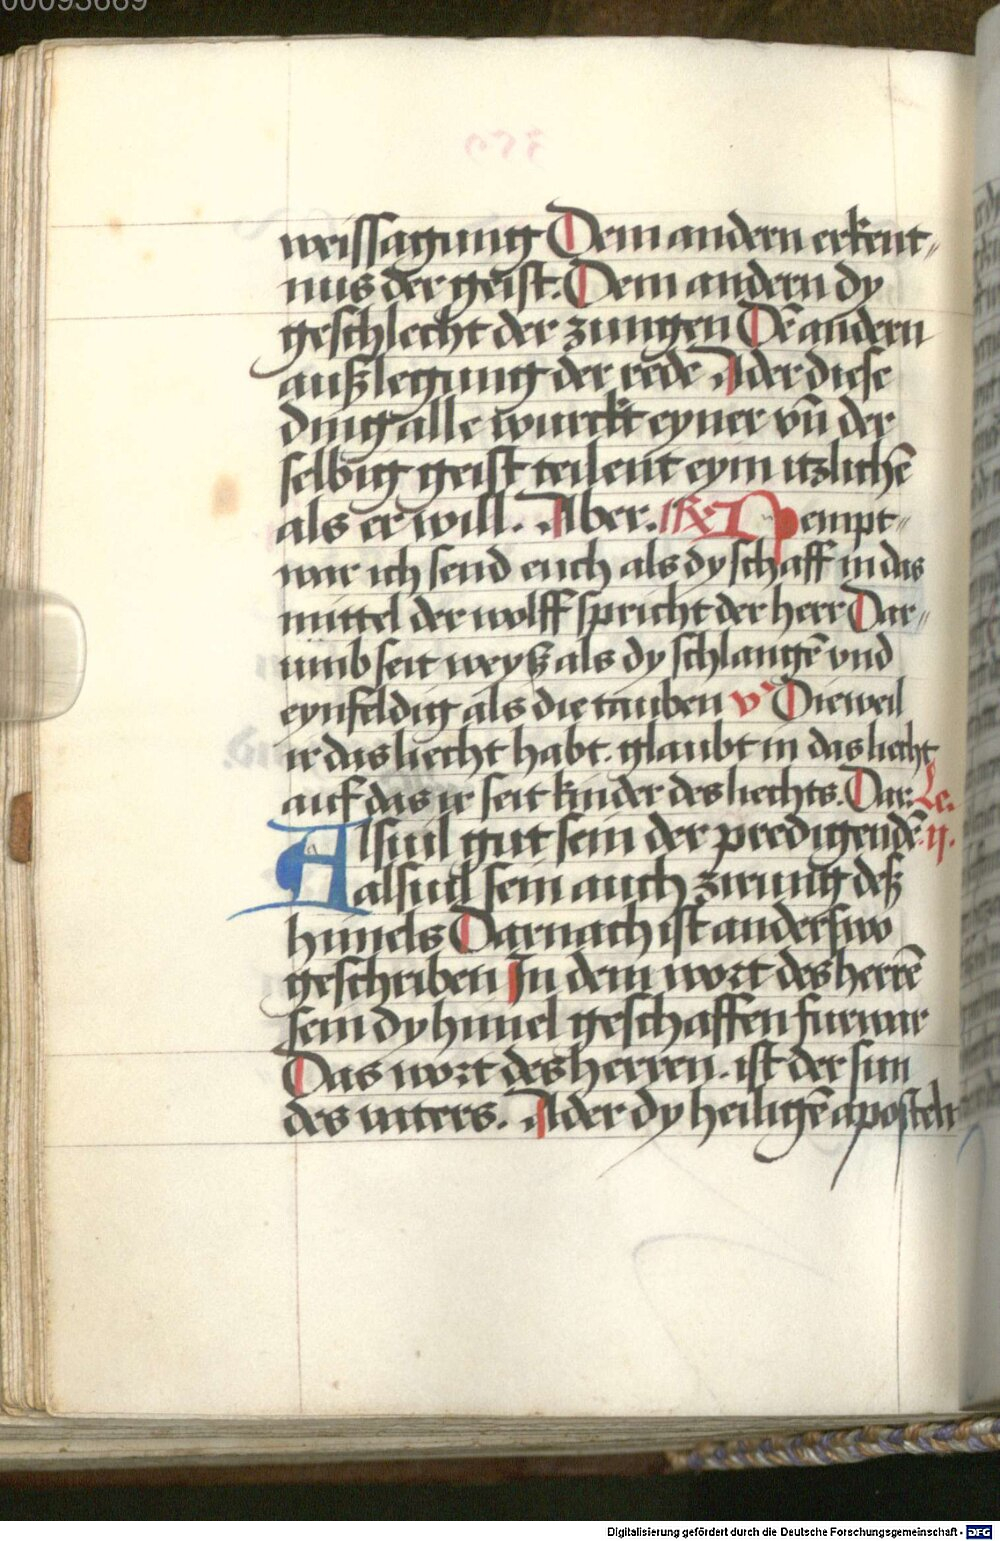 00093669
weissagung Dem andern erkent„
nus der geist. Dem andern dy
geschlecht der zungen Dē andern
außlegung der rede Ader diese
ding alle wurckt eyner vn̄ der
selbig geist teilent eym itzlichē
als er will. Aber. Rx Nempt„
war ich send euch als dy schaff in das
mittel der wolff spricht der herr Dar„
umb seit weyß als dy schlangē vnd
eynfeldig als die tauben v Dieweil
ir das liecht habt. glaubt in das liecht
auf das ir seit kinder des liechts. Dar. Lc.
Alsuil gut sein der predigendē. ij.
alsuil sein auch zirung deß
himels Darnach ist anderswo
geschriben In dem wort des herrē
sein dy himel geschaffen furwar
Das wort des herren. ist der sun
des vaters. Ader dy heiligē aposteln
Digitalisierung gefördert durch die Deutsche Forschungsgemeinschaft - DFG